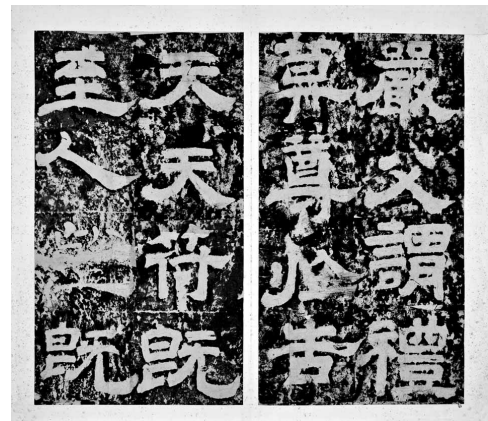 嚴父謂禮
莫尊於告
天天符既
至人既